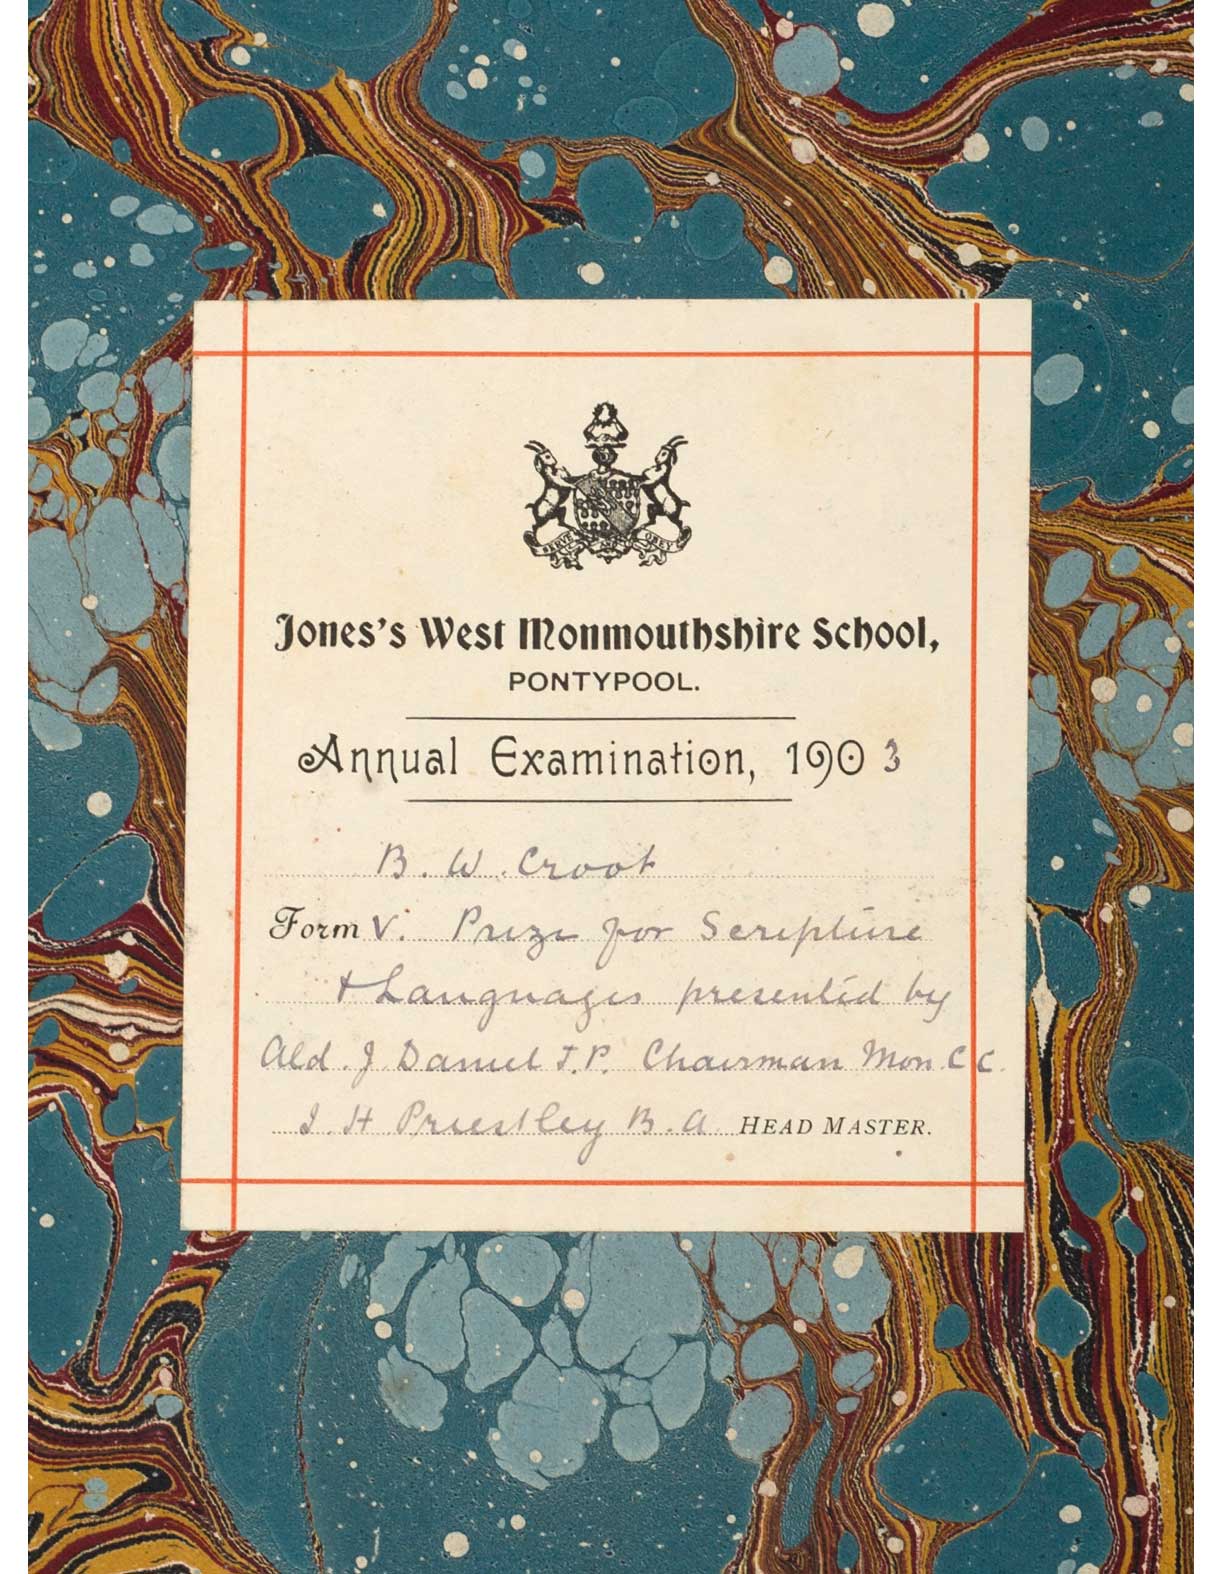 SERVE AND OBEY
Jones's West Monmouthshire School,
PONTYPOOL.
Annual Examination, 1903
B. W. Croot
Form V. Prize for Scripture
+ Languages presented by
Ald. J Daniel J.P. Chairman Mon. C C.
I. H Priestley B.A. HEAD MASTER.